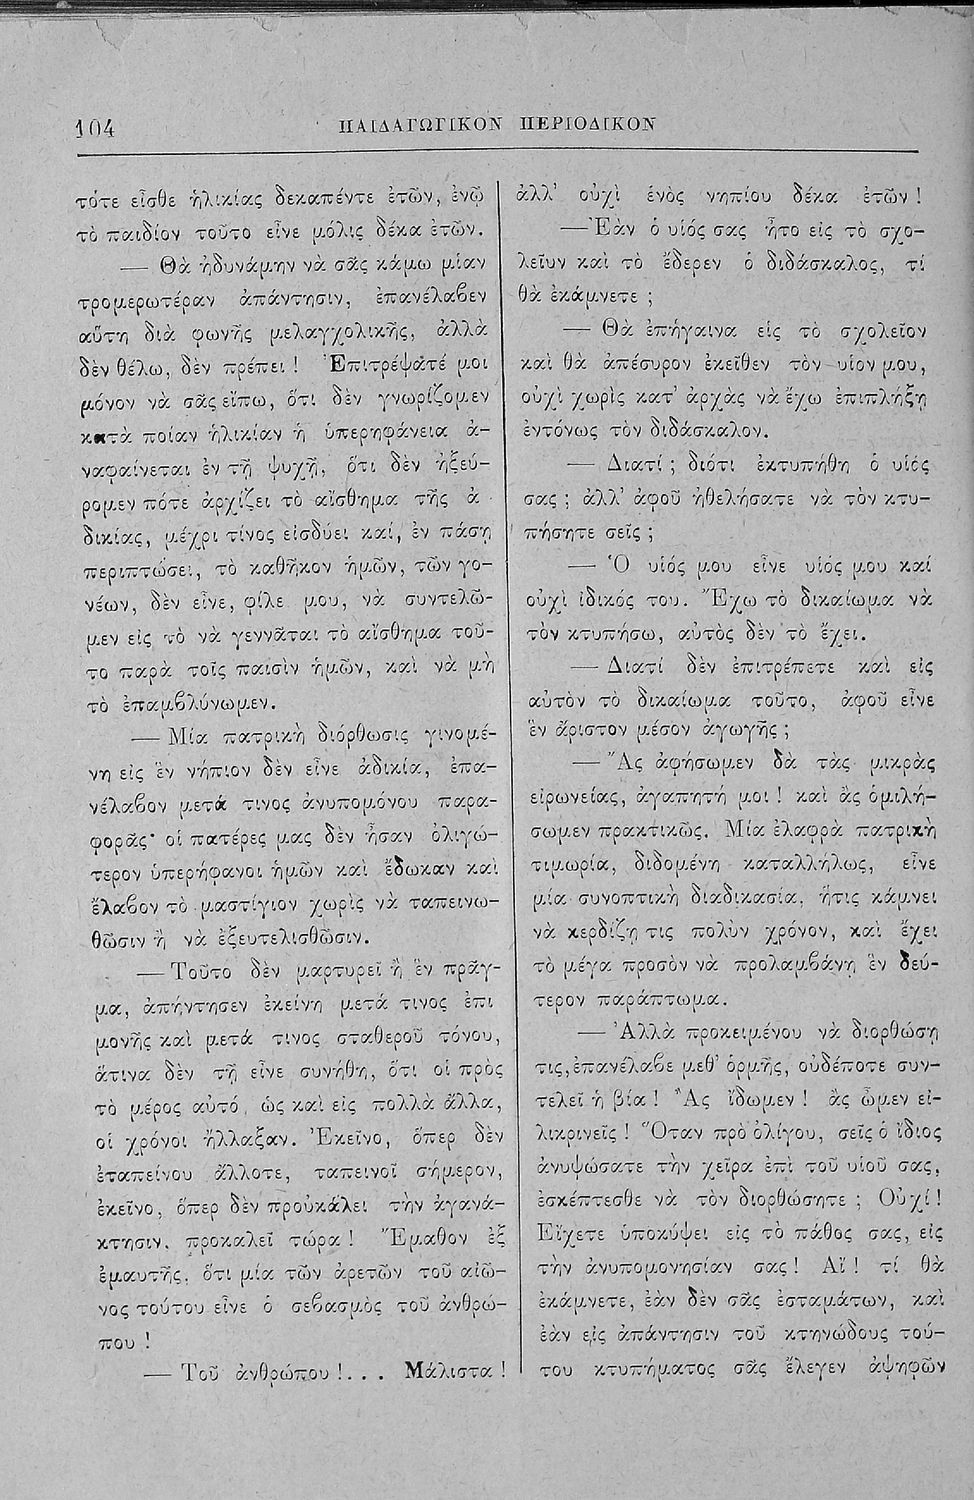 104
ΠΑΙΔΑΓΩΓΙΚΟΝ ΠΕΡΙΟΔΙΚΟΝ
τότε εἶσθε ἡλικίας δεκαπέντε ἐτῶν, ἐνῷ
τὸ παιδίον τοῦτο εἶνε μόλις δέκα ἐτῶν.
— Θὰ ἠδυνάμην νὰ σᾶς κάμω μίαν
τρομερωτέραν ἀπάντησιν, ἐπανέλαβεν
αὕτη διὰ φωνῆς μελαγχολικῆς, ἀλλὰ
δὲν θέλω, δὲν πρέπει! Ἐπιτρέψατέ μοι
μόνον νὰ σᾶς εἴπω, ὅτι δὲν γνωρίζομεν
κατὰ ποίαν ἡλικίαν ἡ ὑπερηφάνεια ἀ-
ναφαίνεται ἐν τῇ ψυχῇ, ὅτι δὲν ἠξεύ-
ρομεν πότε ἀρχίζει τὸ αἴσθημα τῆς ἀ-
δικίας, μέχρι τίνος εἰσδύει καί, ἐν πάσῃ
περιπτώσει, τὸ καθῆκον ἡμῶν, τῶν γο-
νέων, δὲν εἶνε, φίλε μου, νὰ συντελῶ-
μεν εἰς τὸ νὰ γεννᾶται τὸ αἴσθημα τοῦ-
το παρὰ τοῖς παισὶν ἡμῶν, καὶ νὰ μὴ
τὸ ἐπαμβλύνωμεν.
— Μία πατρικὴ διόρθωσις γινομέ-
νη εἰς ἓν νήπιον δὲν εἶνε ἀδικία, ἐπα-
νέλαβον μετά τινος ἀνυπομόνου παρα-
φορᾶς· οἱ πατέρες μας δὲν ἦσαν ὀλιγώ-
τερον ὑπερήφανοι ἡμῶν καὶ ἔδωκαν καὶ
ἔλαβον τὸ μαστίγιον χωρὶς νὰ ταπεινω-
θῶσιν ἢ νὰ ἐξευτελισθῶσιν.
— Τοῦτο δὲν μαρτυρεῖ ἢ ἓν πρᾶγ-
μα, ἀπήντησεν ἐκείνη μετά τινος ἐπι
μονῆς καὶ μετά τινος σταθεροῦ τόνου,
ἅτινα δὲν τῇ εἶνε συνήθη, ὅτι οἱ πρὸς
τὸ μέρος αὐτό, ὡς καὶ εἰς πολλὰ ἄλλα,
οἱ χρόνοι ἤλλαξαν. Ἐκεῖνο, ὅπερ δὲν
ἐταπείνου ἄλλοτε, ταπεινοῖ σήμερον,
ἐκεῖνο, ὅπερ δὲν προὐκάλει τὴν ἀγανά-
κτησιν, προκαλεῖ τώρα! Ἔμαθον ἐξ
ἐμαυτῆς, ὅτι μία τῶν ἀρετῶν τοῦ αἰῶ-
νος τούτου εἶνε ὁ σεβασμὸς τοῦ ἀνθρώ-
που!
— Τοῦ ἀνθρώπου!... Μάλιστα!
ἀλλ' οὐχὶ ἑνὸς νηπίου δέκα ἐτῶν!
— Ἐὰν ὁ υἱός σας ἦτο εἰς τὸ σχο-
λεῖυν καὶ τὸ ἔδερεν ὁ διδάσκαλος, τί
θὰ ἐκάμνετε;
— Θὰ ἐπήγαινα εἰς τὸ σχολεῖον
καὶ θὰ ἀπέσυρον ἐκεῖθεν τὸν υἱον μου,
οὐχὶ χωρὶς κατ' ἀρχὰς νὰ ἔχω ἐπιπλήξῃ
ἐντόνως τὸν διδάσκαλον.
— Διατί; διότι ἐκτυπήθη ὁ υἱός
σας; ἀλλ' ἀφοῦ ἠθελήσατε νὰ τὸν κτυ-
πήσητε σεῖς;
— Ὁ υἱός μου εἶνε υἱός μου καί
οὐχὶ ἰδικός του. Ἔχω τὸ δικαίωμα νὰ
τὸν κτυπήσω, αὐτὸς δὲν τὸ ἔχει.
— Διατί δὲν ἐπιτρέπετε καὶ εἰς
αὐτὸν τὸ δικαίωμα τοῦτο, ἀφοῦ εἶνε
ἓν ἄριστον μέσον ἀγωγῆς;
— Ἂς ἀφήσωμεν δὰ τὰς μικρὰς
εἰρωνείας, ἀγαπητή μοι! καὶ ἂς ὁμιλή-
σωμεν πρακτικῶς. Μία ἐλαφρὰ πατρικὴ
τιμωρία, διδομένη καταλλήλως, εἶνε
μία συνοπτικὴ διαδικασία, ἥτις κάμνει
νὰ κερδίζῃ τις πολὺν χρόνον, καὶ ἔχει
τὸ μέγα προσὸν νὰ προλαμβάνῃ ἓν δεύ-
τερον παράπτωμα.
— Ἀλλὰ προκειμένου νὰ διορθώσῃ
τις, ἐπανέλαβε μεθ' ὁρμῆς, οὐδέποτε συν-
τελεῖ ἡ βία! Ἂς ἴδωμεν! ἂς ὦμεν εἰ-
λικρινεῖς! Ὅταν πρὸ ὀλίγου, σεῖς ὁ ἴδιος
ἀνυψώσατε τὴν χεῖρα ἐπὶ τοῦ υἱοῦ σας,
ἐσκέπτεσθε νὰ τὸν διορθώσητε; Οὐχί!
Εἴχετε ὑποκύψει εἰς τὸ πάθος σας, εἰς
τὴν ἀνυπομονησίαν σας! Αἴ! τί θὰ
ἐκάμνετε, ἐὰν δὲν σᾶς ἐσταμάτων, καὶ
ἐὰν εἰς ἀπάντησιν τοῦ κτηνώδους τού-
του κτυπήματος σᾶς ἔλεγεν ἀψηφῶν